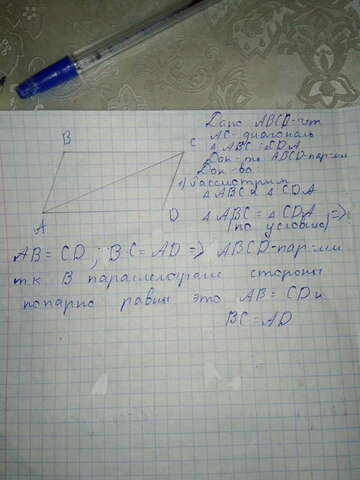 B
C
A
D
Дано: ABCD-чет
AC-диагональ
△ ABC = △CDA
Док-ть ABCD-пар-мм
Док-во:
1) рассмотрим
△ ABC и △ CDA
△ ABC = △ CDA =>
(по условию)
AB = CD ; BC = AD => ABCD-пар-мм
т.к в параллелограме стороны
попарно равны это AB = CD и
BC = AD